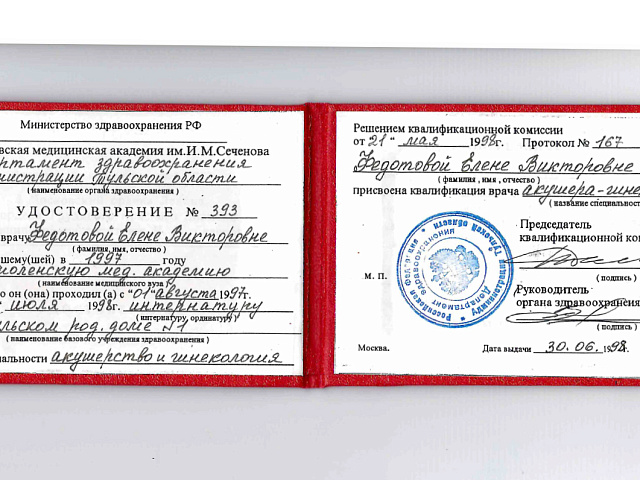 Министерство здравоохранения РФ
вская медицинская академия им.И.М.Сеченова
ртамент здравоохранения
нистрации Тульской области
( наименование органа здравоохранения )
УДОСТОВЕРЕНИЕ № 393
врачу Федотовой Елене Викторовне
( фамилия, имя, отчество )
шему(шей) в 1997 году
моленскую мед. академию
( наименование медицинского вуза )
о он (она) проходил (а) с "01" августа 1997г.
июля 1998г. интернатуру
( интернатуру, ординатуру )
льском род. доме №1
( наименование базового учреждения здравоохранения )
альности акушерство и гинекология
Решением квалификационной комиссии
от 21" мая 1998г. Протокол № 167
Федотовой Елене Викторовне
( фамилия , имя , отчество )
присвоена квалификация врача акушера-гине
( название специальнос
Председатель
квалификационной ко
( подпись )
М. П.
Руководитель
органа здравоохранен
( подпись )
Москва. Дата выдачи 30.06. 1998.
Российская Федерация
Администрация Тульской области
Департамент здравоохранения